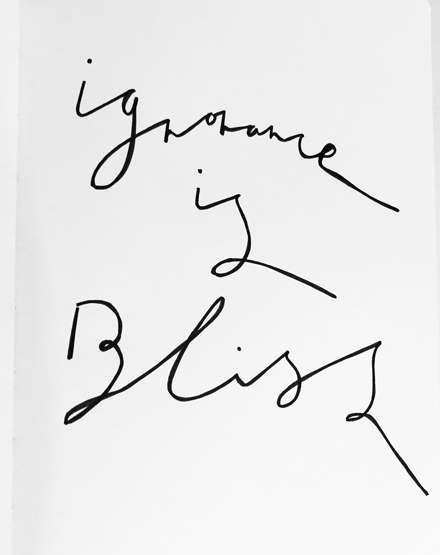 ignorance
is
Bliss